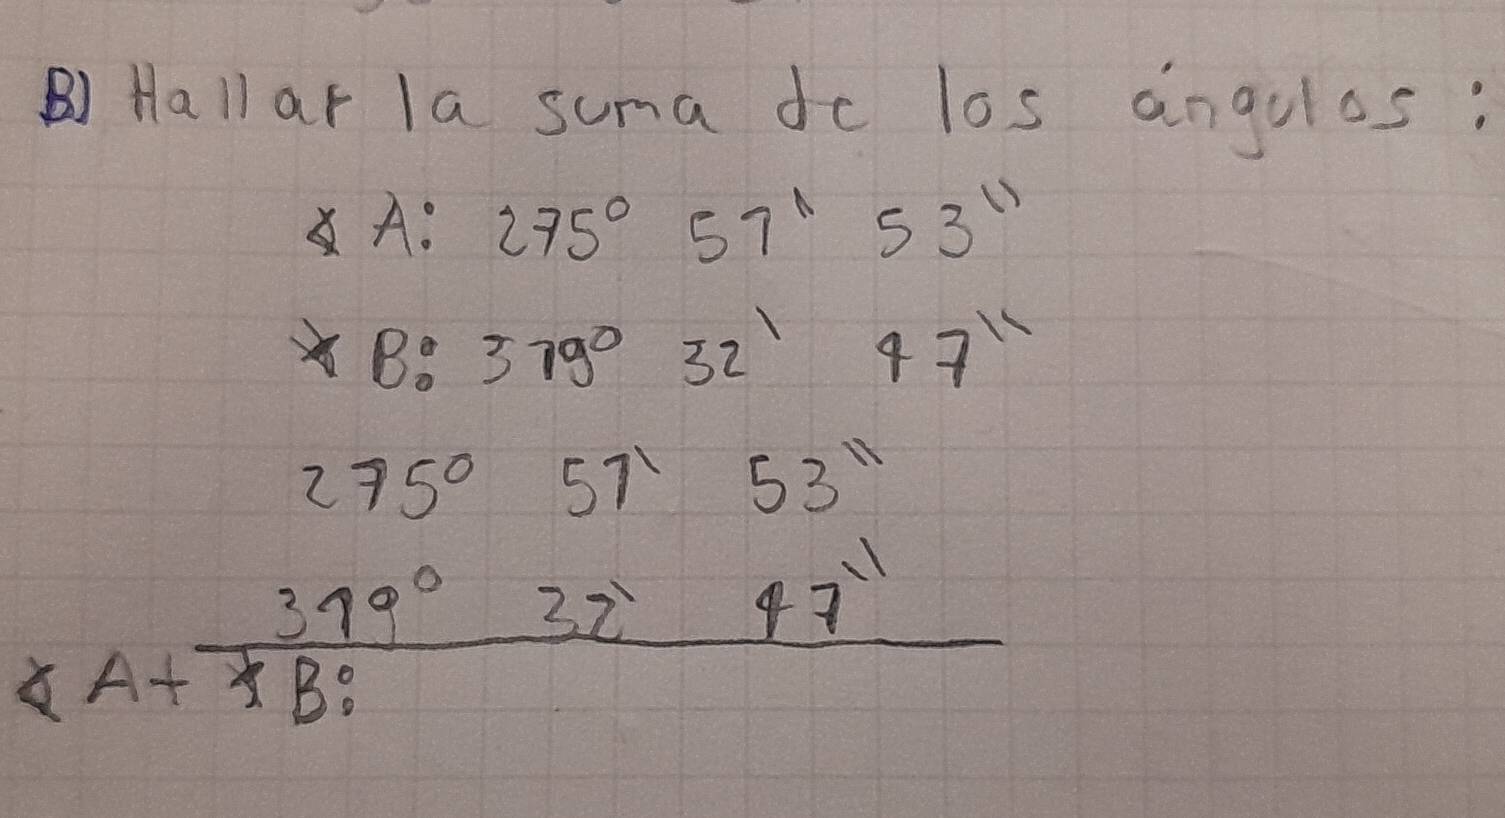 B) Hallar la suma de los ángulos:
∢ A: 275° 51' 53''
∢ B: 319° 32' 47''
275° 51' 53''
319° 32' 47''
∢ A + ∢ B: